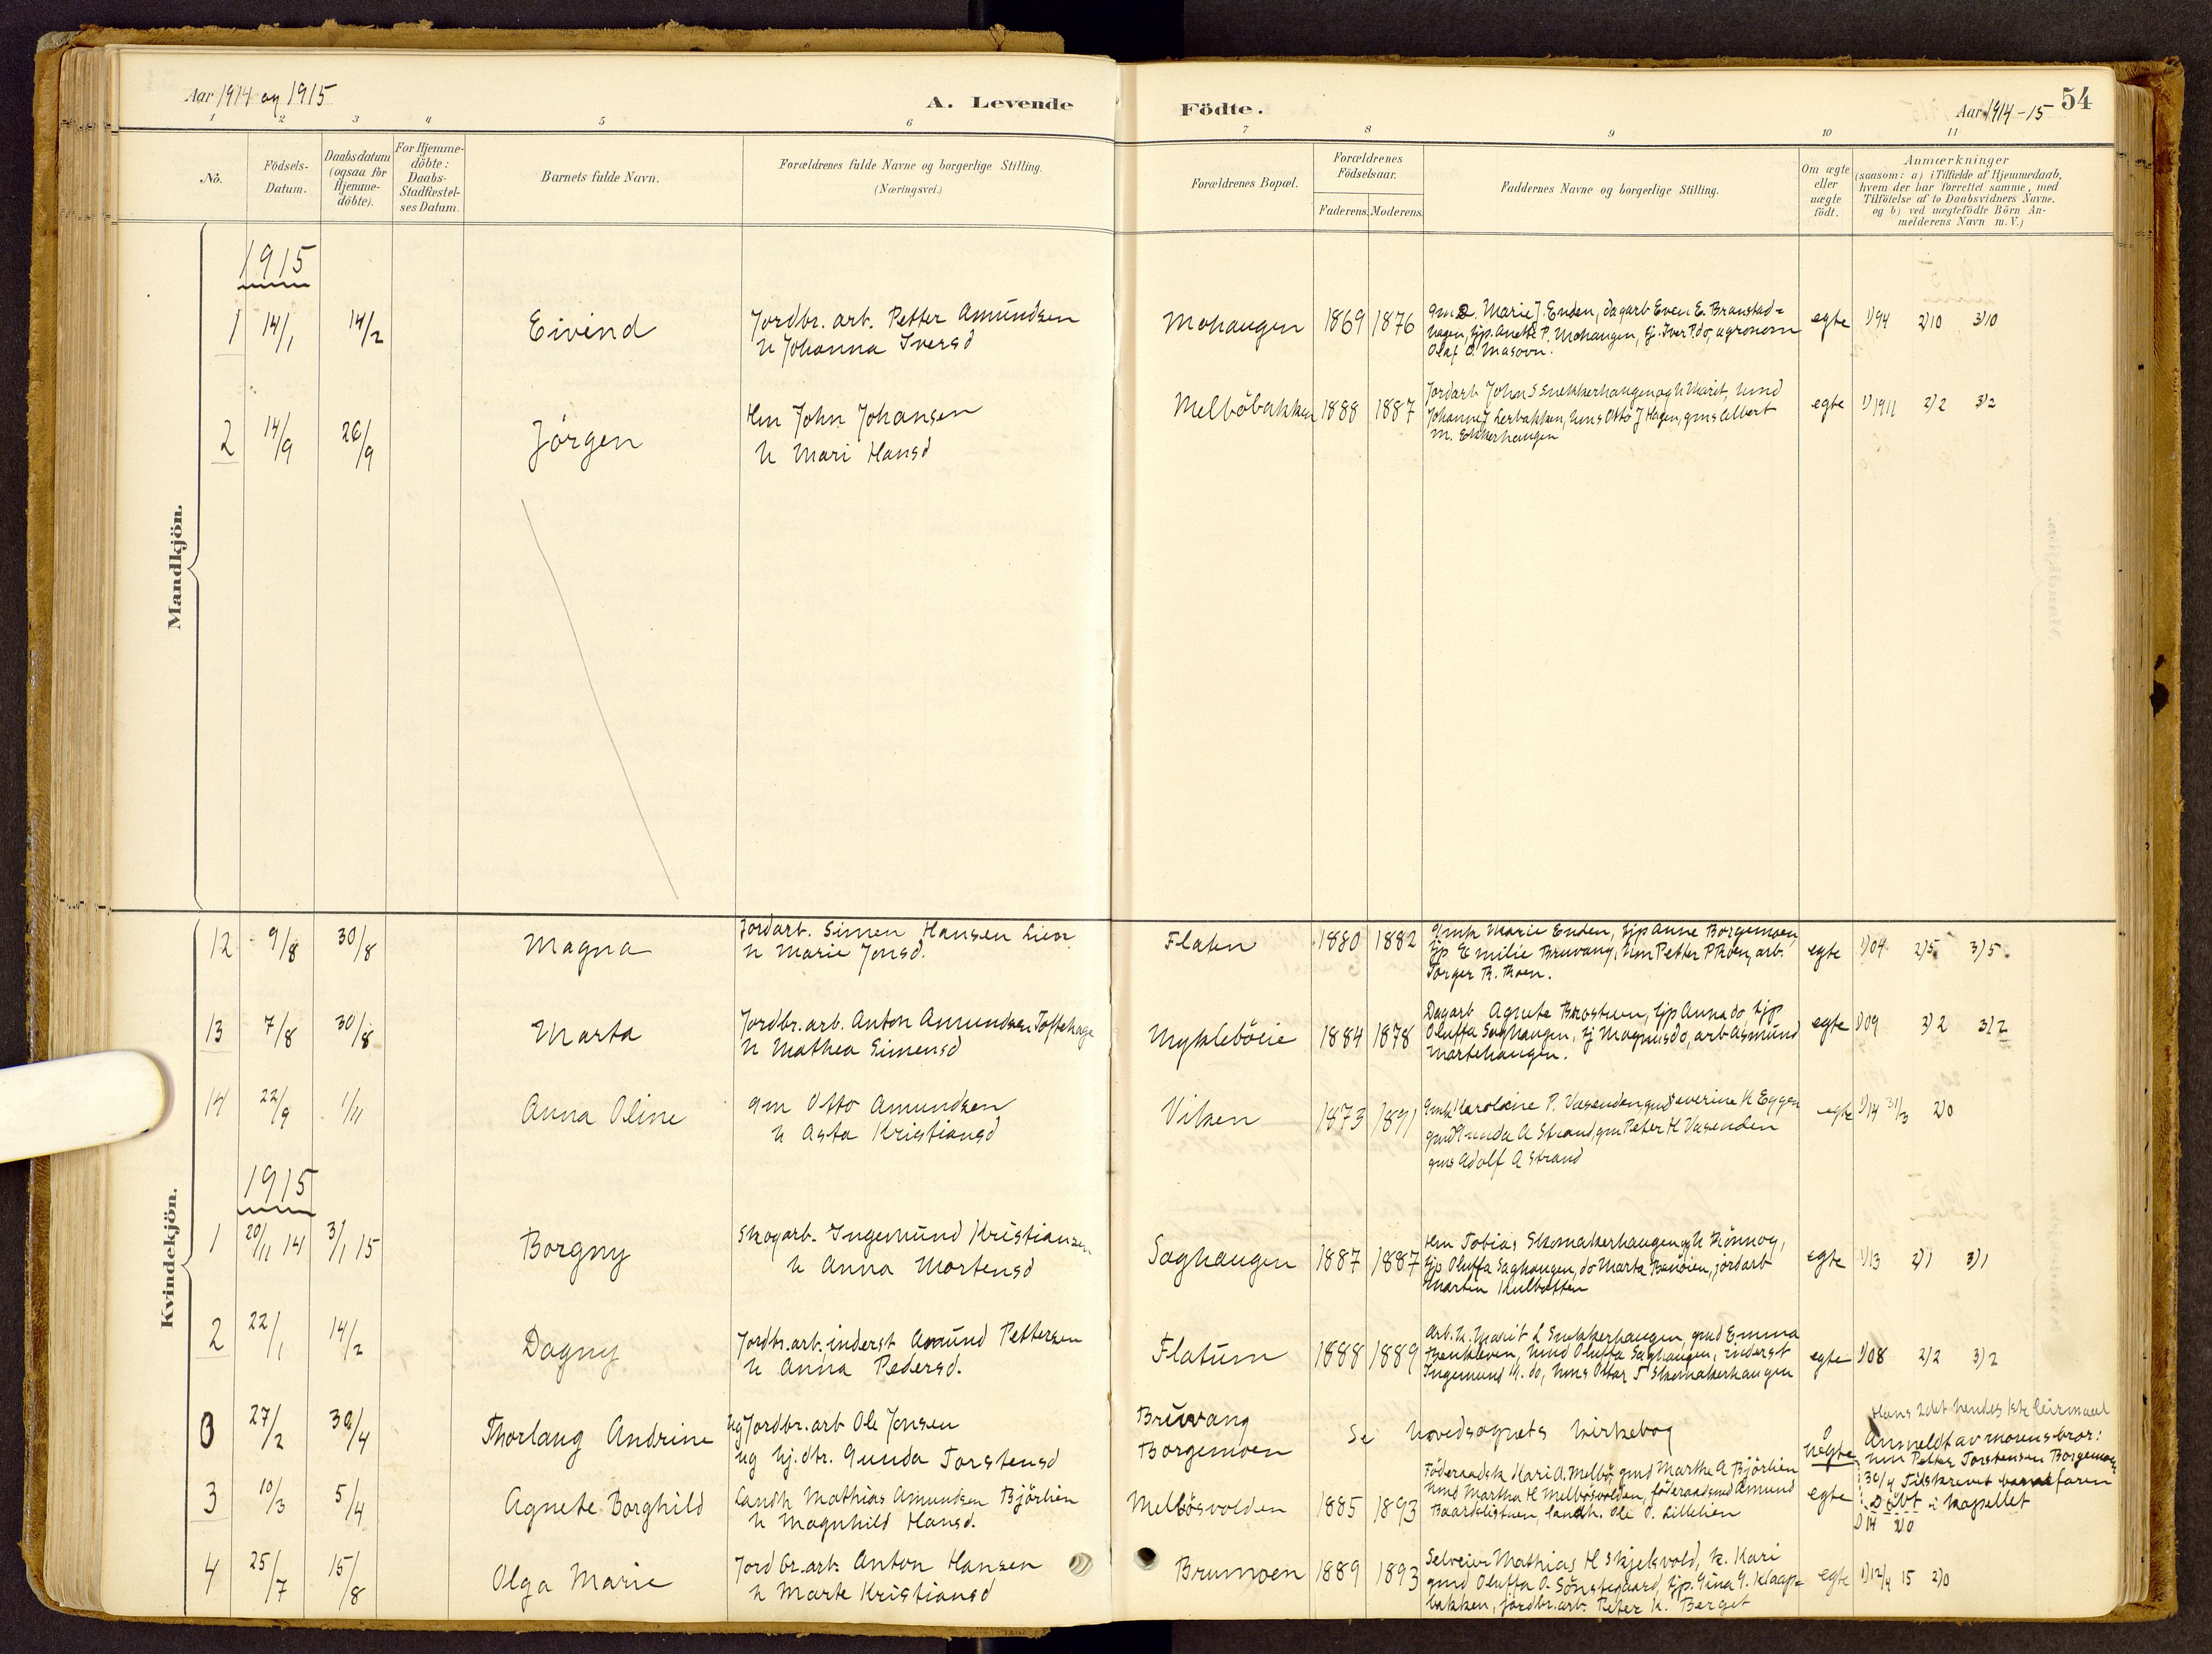 Aar 1914 og 1915
A. Levende Födte.
Aar 1914-15 54
1 2 3 4 5 6 7 8 9 10 11
No.
Födsels-Datum.
Daabsdatum (ogsaa for Hjemme-döbte).
For Hjemme-döbte: Daabs-Stadfæstel-ses Datum.
Barnets fulde Navn.
Forældrenes fulde Navne og borgerlige Stilling.
(Næringsvei.)
Forældrenes Bopæl.
Forældrenes Födselsaar.
Faderens. Moderens.
Faddernes Navne og borgerlige Stilling.
Om ægte eller uægte födt.
Anmærkninger
(saasom: a) i Tilfælde af Hjemmedaab,
hvem der har forrettet samme, med
Tilföielse af to Daabsvidners Navne.
og b) ved uægtefödte Börn An-
melderens Navn m. V.)
Mandkjön.
1915
1 14/1 14/2 Eivind Jordbr. arb. Petter Amundsen
h Johanna Iversd
Mohaugen 1869 1876
Marie J. Enden, dagarb Even E. Branstad=
hagen, tjp. Anette P. Mohaugen, tj. Iver P. do, agronom
Olaf O. Masovn.
egte 1)94 2)10 3)10
2 14/9 26/9 Jörgen Hm John Johansen
h Mari Hansd
Melböbakken 1888 1887
Jordarb John S Snekkerhaugen og h Marit, hmd
Johanne J Lerbakken, hms Otto J Hagen, gms Albert
M. Ekkerhaugen
egte 1)1911 2)2 3)2
Kvindekjön.
12 9/8 30/8 Magna Jordarb. Simen Hansen Lien
h Marie Jonsd.
Flaten 1880 1882
Gmk Marie Enden, tjp Anne Borgemoen,
tjp Emilie Bruvang, hm Petter P Moen, arb.
Torger R. Moen.
egte 1)04 2)5. 3)5.
13 7/8 30/8 Marta Jordbr. arb. Anton Amundsen Toftehage
h Mathea Simensd
Mykleböeie 1884 1878
Dagarb Agnete Brostuen, tjp Anna do tjp
Oluffa Saghaugen, tj Magnus do, arb Asmund
Martehaugen.
egte 1)09 3)2 3)2
14 22/9 1/11 Anna Oline gm Otto Amundsen
h Asta Kristiansd
Viken 1873 1891
Gmk Karoline P. Vasenden, gmd Severine K Eggen
gmd Gunda A Strand, gm Peter H Vasenden
gms Adolf A Strand
egte 1)14 31/3 2)0
1915
1 20/11 14 3/1 15 Borgny Skogarb. Ingemund Kristiansen
h Anna Mortensd
Saghaugen 1887 1887
Hm Tobias Skomakerhaugen og h Rönnog,
tjp Oluffa Saghaugen, do Marta Benöien, jordarb
Martin Kulbotten
egte 1)13 2)1 3)1
2 22/1 14/2 Dagny Jordbr. arb. inderst Amund Pettersen
h Anna Pedersd.
Flatum 1888 1889
Arb. k. Marit L Snekkerhaugen, gmd Emma
hmd Oluffa Saghaugen, inderst
Ingemund M. do, hms Ottar T Skomakerhaugen
egte 1)08 2)2 3)2
3 27/2 30/4 Thorlaug Andrine Ug Jordbr. arb Ole Jonsen
ug hj. dtr. Gunda Torstensd
Bruvang
Borgemoen
Se Hovedsognets kirkebog
uegte
Hans 2det hendes 1ste leirmaal
Anmeldt av morens bror:
hm Petter Torstensen Borgemoen
30/4 Tilskrevet barnefaren
Döbt i kapellet
3 10/3 5/4 Agnete Borghild Landh Mathias Amundsen Björlien
h Magnhild Hansd.
Melbösvolden 1885 1893
Föderaadsk Kari A. Melbö, gmd Marthe A Björlien
hmd Martha H Melbösvolden, föderaadsmd Amund
Baardslistuen, landh. Ole O. Lillelien
egte 1)14 2)0
4 25/7 15/8 Olga Marie Jordbr. arb. Anton Hansen
h Marte Kristiansd
Brumoen 1889 1893
Selveier Mathias H Skjelvold, k. Kari
gmd Oluffa O. Sönstegaard, tjp. Gina G. Klaap=
bakken, jordbr. arb. Peter K. Berget
egte 1)12/4 15 2)0